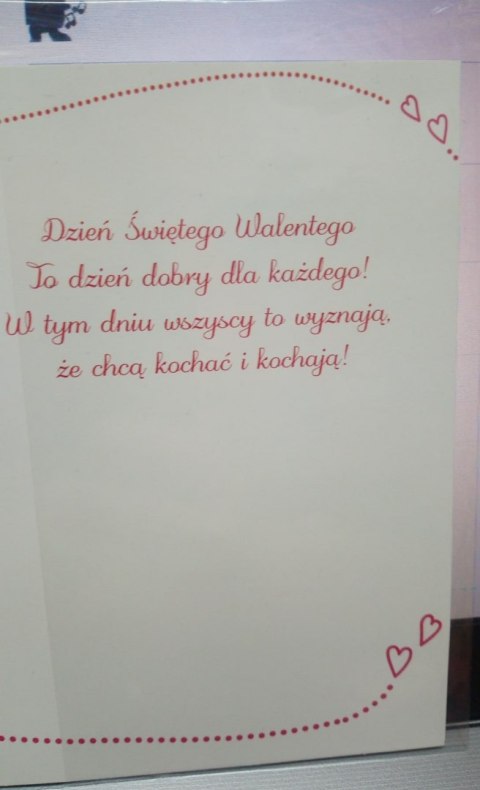 Dzień Świętego Walentego
To dzień dobry dla każdego!
W tym dniu wszyscy to wyznają,
że chcą kochać i kochają!